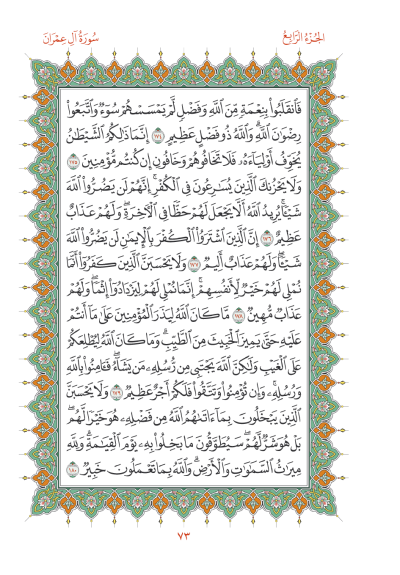 الجُزءُ الرَّابِعُ
سُورَةُ آلِ عِمْرَانَ
فَٱنقَلَبُوا۟ بِنِعْمَةٍ مِّنَ ٱللَّهِ وَفَضْلٍ لَّمْ يَمْسَسْهُمْ سُوٓءٌ وَٱتَّبَعُوا۟
رِضْوَٰنَ ٱللَّهِ ۗ وَٱللَّهُ ذُو فَضْلٍ عَظِيمٍ ١٧٤ إِنَّمَا ذَٰلِكُمُ ٱلشَّيْطَٰنُ
يُخَوِّفُ أَوْلِيَآءَهُۥ فَلَا تَخَافُوهُمْ وَخَافُونِ إِن كُنتُم مُّؤْمِنِينَ ١٧٥
وَلَا يَحْزُنكَ ٱلَّذِينَ يُسَٰرِعُونَ فِى ٱلْكُفْرِ ۚ إِنَّهُمْ لَن يَضُرُّوا۟ ٱللَّهَ
شَيْـًٔا ۗ يُرِيدُ ٱللَّهُ أَلَّا يَجْعَلَ لَهُمْ حَظًّا فِى ٱلْـَٔاخِرَةِ ۖ وَلَهُمْ عَذَابٌ
عَظِيمٌ ١٧٦ إِنَّ ٱلَّذِينَ ٱشْتَرَوُا۟ ٱلْكُفْرَ بِٱلْإِيمَٰنِ لَن يَضُرُّوا۟ ٱللَّهَ
شَيْـًٔا وَلَهُمْ عَذَابٌ أَلِيمٌ ١٧٧ وَلَا يَحْسَبَنَّ ٱلَّذِينَ كَفَرُوٓا۟ أَنَّمَا
نُمْلِى لَهُمْ خَيْرٌ لِّأَنفُسِهِمْ ۚ إِنَّمَا نُمْلِى لَهُمْ لِيَزْدَادُوٓا۟ إِثْمًا ۚ وَلَهُمْ
عَذَابٌ مُّهِينٌ ١٧٨ مَّا كَانَ ٱللَّهُ لِيَذَرَ ٱلْمُؤْمِنِينَ عَلَىٰ مَآ أَنتُمْ
عَلَيْهِ حَتَّىٰ يَمِيزَ ٱلْخَبِيثَ مِنَ ٱلطَّيِّبِ ۗ وَمَا كَانَ ٱللَّهُ لِيُطْلِعَكُمْ
عَلَى ٱلْغَيْبِ وَلَٰكِنَّ ٱللَّهَ يَجْتَبِى مِن رُّسُلِهِۦ مَن يَشَآءُ ۖ فَـَٔامِنُوا۟ بِٱللَّهِ
وَرُسُلِهِۦ ۚ وَإِن تُؤْمِنُوا۟ وَتَتَّقُوا۟ فَلَكُمْ أَجْرٌ عَظِيمٌ ١٧٩ وَلَا يَحْسَبَنَّ
ٱلَّذِينَ يَبْخَلُونَ بِمَآ ءَاتَىٰهُمُ ٱللَّهُ مِن فَضْلِهِۦ هُوَ خَيْرًا لَّهُم ۖ
بَلْ هُوَ شَرٌّ لَّهُمْ ۖ سَيُطَوَّقُونَ مَا بَخِلُوا۟ بِهِۦ يَوْمَ ٱلْقِيَٰمَةِ ۗ وَلِلَّهِ
مِيرَٰثُ ٱلسَّمَٰوَٰتِ وَٱلْأَرْضِ ۗ وَٱللَّهُ بِمَا تَعْمَلُونَ خَبِيرٌ ١٨٠
٧٣